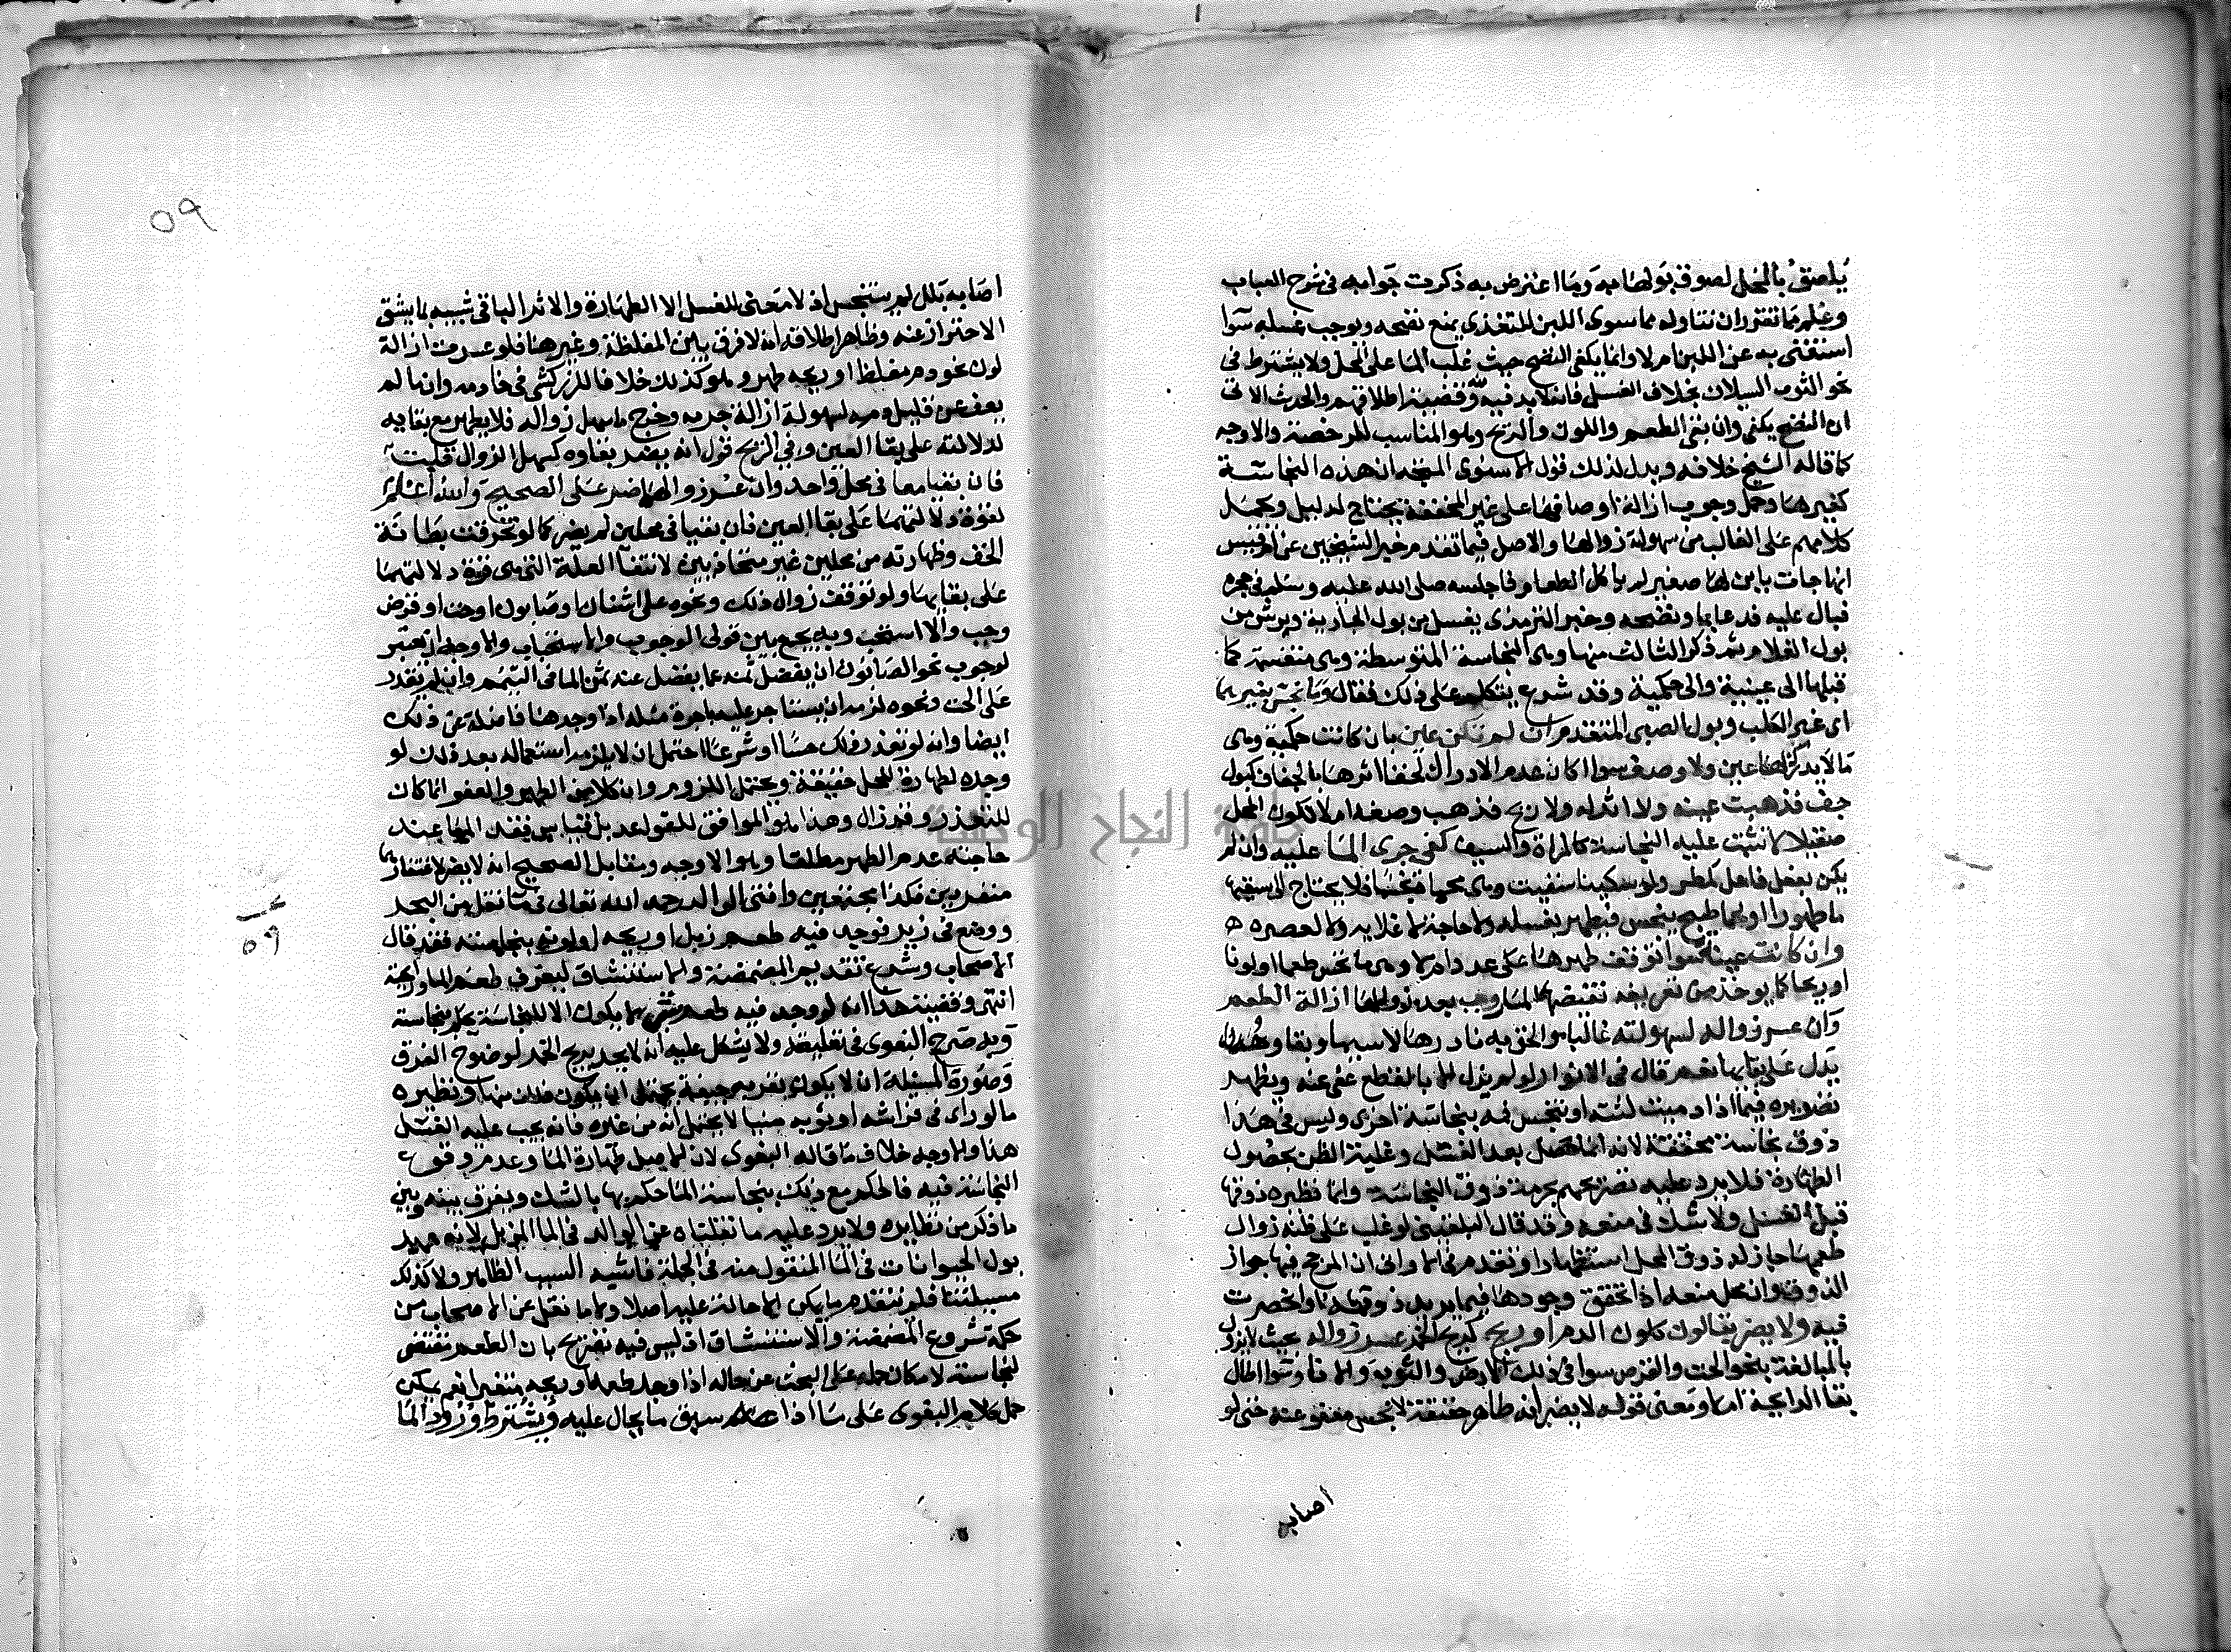 يلصق بالمحل لصوق بولها به وما اعترض به ذكرت جوابه في شرح العباب
وعلم مما تقرر ان تناوله مما سوى اللبن للتغذي يمنع نضحه ويوجب غسله سوا
استغنى به عن اللبن ام لا وانما يكفي النضح حيث غلب الما على المحل ولا يشترط في
نحو الثوب السيلان بخلاف الغسل فانه لا بد فيه وقضية اطلاقهم والحديث الاتي
ان النضح يكفي وان بقي الطعم واللون والريح وهو المناسب للرخصة والاوجه
كما قاله الشيخ خلافه ويدل لذلك قول الاسنوي المتجه ان هذه النجاسة
كغيرها وحمل وجوب ازالة اوصافها على غير المخففة يحتاج لدليل ويحمل
كلامهم على الغالب من سهولة زوالها والاصل فيما تقدم خبر الشيخين عن ام قيس
انها جات بابن لها صغير لم ياكل الطعام فاجلسه صلى الله عليه وسلم في حجره
فبال عليه فدعا بما ونضحه وخبر الترمذي يغسل من بول الجارية ويرش من
بول الغلام ثم ذكر الثالث منها وهي النجاسة المتوسطة وهي منقسمة كما
قبلها الى عينية والى حكمية وقد شرع يتكلم على ذلك فقال وما نجس بغيرهما
اي غير الكلب وبول الصبي المتقدم ان لم تكن عين بان كانت حكمية وهي
ما لا يدرك لها عين ولا وصف سوا اكان عدم الادراك لخفا اثرها بالجفاف كبول
جف فذهبت عينه ولا اثر له ولا ريح فذهب وصفه ام لا لكون المحل
صقيلا لا تثبت عليه النجاسة كالمراة والسيف كفى جري الما عليه وان لم
يكن بفعل فاعل كمطر ولو سكينا سقيت وهي محماة نجسا فلا يحتاج لسقيها
ما طهورا او لحما طبخ بنجس فيطهر بغسله ولا حاجة لاغلايه ولا لعصره
وان كانت عينا سوا توقف طهرها على عدد ام لا وهي ما نجس طعما او لونا
او ريحا كما يوخذ من تعريفه نقيضها المار وجب بعد زوالها ازالة الطعم
وان عسر زواله لسهولته غالبا والحق به نادرها لا سيما وبقاوه
يدل على بقايها نعم قال في الانوار لو لم يزل الا بالقطع عفي عنه ويظهر
تصويره فيما اذا دميت لثته او تنجس فمه بنجاسة اخرى وليس في هذا
ذوق نجاسة محققة لانه انما حصل بعد الغسل وغلبة الظن بحصول
الطهارة فلا يرد عليه تصريحهم بحرمة ذوق النجاسة وانما نظيره ذوقها
قبل الغسل ولا شك في منعه وقد قال البلقيني لو غلب على ظنه زوال
طعمها جاز له ذوق المحل استظهارا وتقدم في الاواني ان المرجح فيها جواز
الذوق وان محل منعه اذا تحقق وجودها فيما يريد ذوقه او انحصرت
فيه ولا يضر بقا لون كلون الدم او ريح كريح الخمر عسر زواله بحيث لا يزول
بالمبالغة بنحو الحت والقرص سوا في ذلك الارض والثوب والانا وسوا اطال
بقا الرايحة ام لا ومعنى قوله لا يضر انه طاهر حقيقة لا نجس معفو عنه حتى لو
اصابه
٥٩
اصابه بلل لم يتنجس اذ لا معنى للغسل الا الطهارة والاثر الباقي شبيه بما يشق
الاحتراز عنه وظاهر اطلاقه انه لا فرق بين المغلظة وغيرها فلو عسرت ازالة
لون نحو دم مغلظ او ريحه طهر وهو كذلك خلافا للزركشي في خادمه وانما لم
يعف عن قليل دمه لسهولة ازالة جرمه وخرج ما سهل زواله فلا يطهر مع بقايه
لدلالته على بقا العين وفي الريح قول انه يضر بقاوه كسهل الزوال قلت
فان بقيا معا في محل واحد وان عسر زوالهما ضر على الصحيح والله اعلم
لقوة دلالتهما على بقا العين فان بقيا في محلين لم يضر كما لو تخرقت بطانة
الخف وظهارته من محلين غير متحاذيين لانتفا العلة التي هي قوة دلالتهما
على بقايها ولو توقف زوال ذلك ونحوه على اشنان او صابون او حت او قرص
وجب والا استحب وبه يجمع بين قولي الوجوب والاستحباب والاوجه ان يعتبر
لوجوب نحو الصابون ان يفضل ثمنه عما يفضل عنه ثمن الما في التيمم وان لم يقدر
على الحت ونحوه لزمه ان يستاجر عليه باجرة مثله اذا وجدها فاضلة عن ذلك
ايضا وانه لو تعذر ذلك حسا او شرعا احتمل ان لا يلزمه استعماله بعد ذلك لو
وجده لطهارة المحل حقيقة ويحتمل اللزوم وان كلا من الطهر والعفو انما كان
للتعذر وقد زال وهذا هو الموافق للقواعد بل قياس فقد الما عند
حاجته عدم الطهر مطلقا وهو الاوجه ومقابل الصحيح انه لا يضر لاغتفارهما
منفردين فكذا مجتمعين وافتى الوالد رحمه الله تعالى في ما نقل من البحر
ووضع في زير فوجد فيه طعم زبل او ريحه او لونه بنجاسته فقد قال
الاصحاب وشرع تقديم المضمضة والاستنشاق ليعرف طعم الما ورايحته
انتهى وقضية هذا انه لو وجد فيه طعم شي لا يكون الا للنجاسة حكم بنجاسته
وبه صرح البغوي في تعليقه ولا يشكل عليه انه لا يحد بريح الخمر لوضوح الفرق
وصورة المسيلة ان لا يكون بقربه جيفة يحتمل ان يكون ذلك منها ونظيره
ما لو راى في فراشه او ثوبه منيا لا يحتمل انه من غيره فانه يجب عليه الغسل
هذا والاوجه خلاف ما قاله البغوي لان الاصل طهارة الما وعدم وقوع
النجاسة فيه فالحكم مع ذلك بنجاسة الما حكم بها بالشك ويفرق بينه وبين
ما ذكر من نظايره ولا يرد عليه ما نقلناه عن الوالد في الما المزبل لانه عهد
بول الحيوانات في الما المنقول منه في الجملة فاشبه السبب الظاهر ولا كذلك
مسيلتنا فلم يتقدم ما يمكن الاحالة عليه اصلا ولا ما نقل عن الاصحاب من
حكمة شروع المضمضة والاستنشاق اذ ليس فيه تصريح بان الطعم مقتضى
لنجاسة لامكان حمله على البحث عن حاله اذا وجد طعمه او ريحه متغيرا نعم يمكن
حمل كلام البغوي على ما اذا سبق ما يحال عليه ويشترط ورود الما
٥٩
جامعة النجاح الوطنية